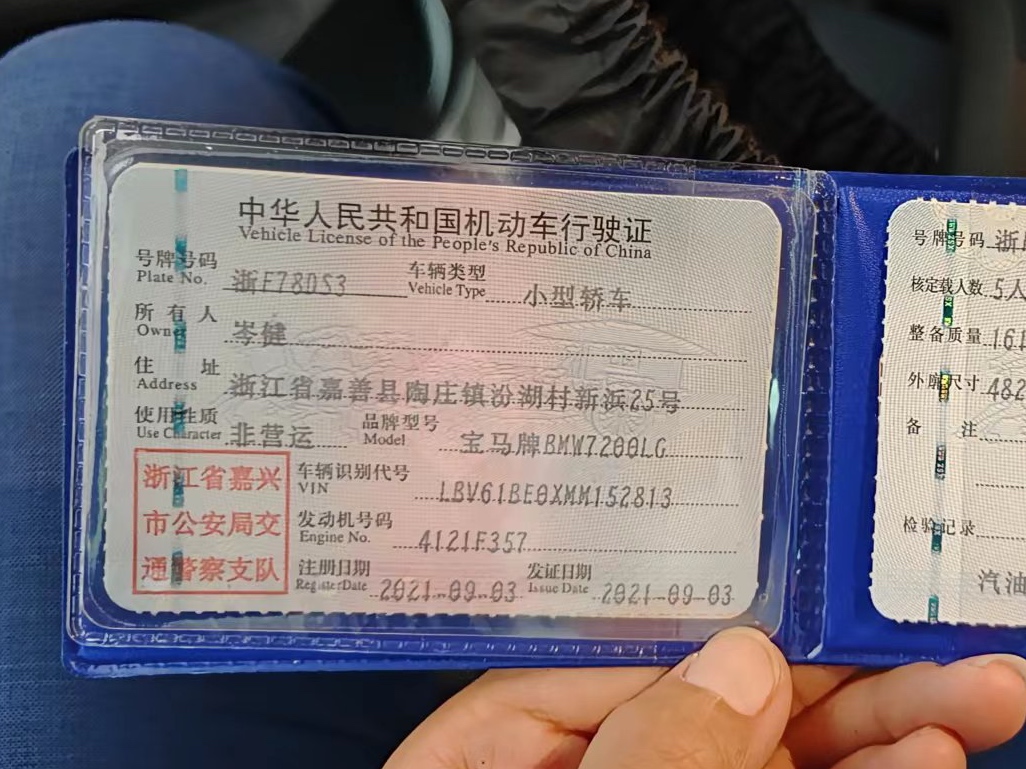 中华人民共和国机动车行驶证
Vehicle License of the People's Republic of China
号牌号码 浙F78DS3 车辆类型 小型轿车
Plate No. Vehicle Type
所有人 岑健
Owner
住址 浙江省嘉善县陶庄镇汾湖村新浜25号
Address
使用性质 非营运 品牌型号 宝马牌BMW7200LG
Use Character Model
浙江省嘉兴
市公安局交
通警察支队
车辆识别代号 LBV61BE0XMM152813
VIN
发动机号码 4121F357
Engine No.
注册日期 2021-09-03 发证日期 2021-09-03
Register Date Issue Date
号牌号码 浙
核定载人数 5人
整备质量 161
外廓尺寸 482
备注
检验记录
汽油